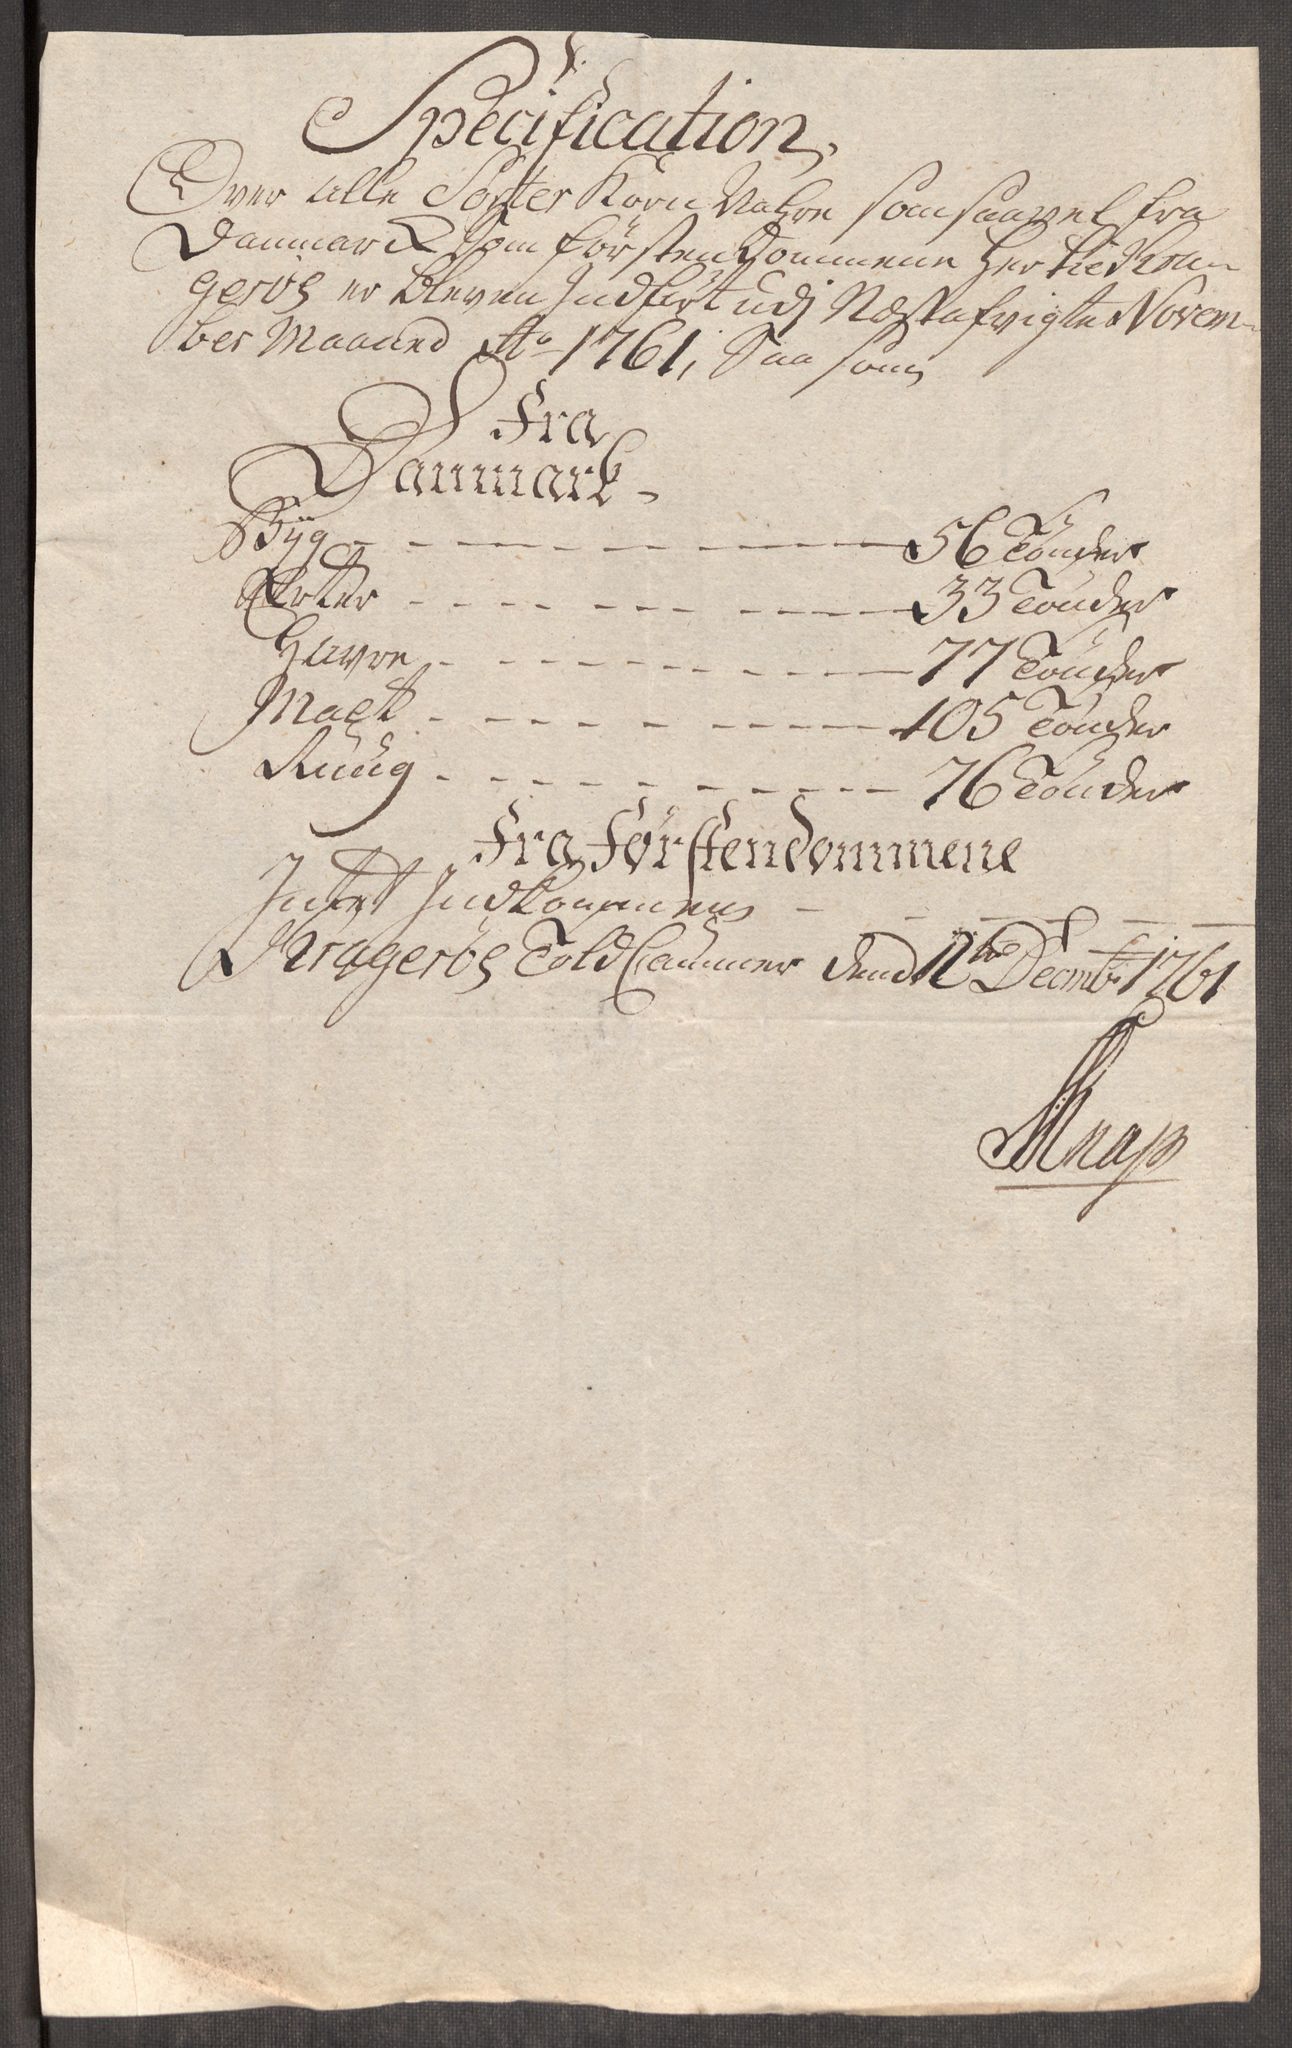 Specification,
Over alle Sorter Korn Vahre som saavel fra
Danmarck som förstendommene her tie Kra-
geröe er bleven Indfört udj Næstafvigte Novem-
ber Maaned Ao 1761, Saa som
Fra
Danmark -
Byg - - - - 56 Tönder
Erter - - - - 33 Tönder
Havre - - - - 77 Tönder
Malt - - - - 105 Tönder
Ruug - - - - 76 Tönder
Fra Førstendommene
Intet Indkommen - - - -
Krageröe Told Cammer dend 12te Decmbr 1761
Knap